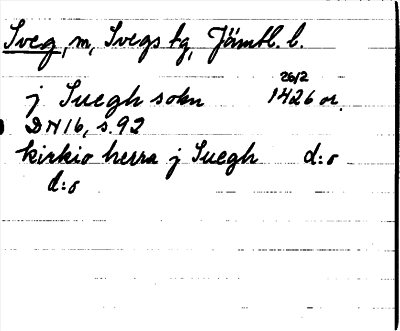 Sveg, m, Svegs tg, Jämtl. l.
26/2
j Suegh sokn 1426 or.
DN 16, s. 92
kirkio herra j Suegh d:o
d:o